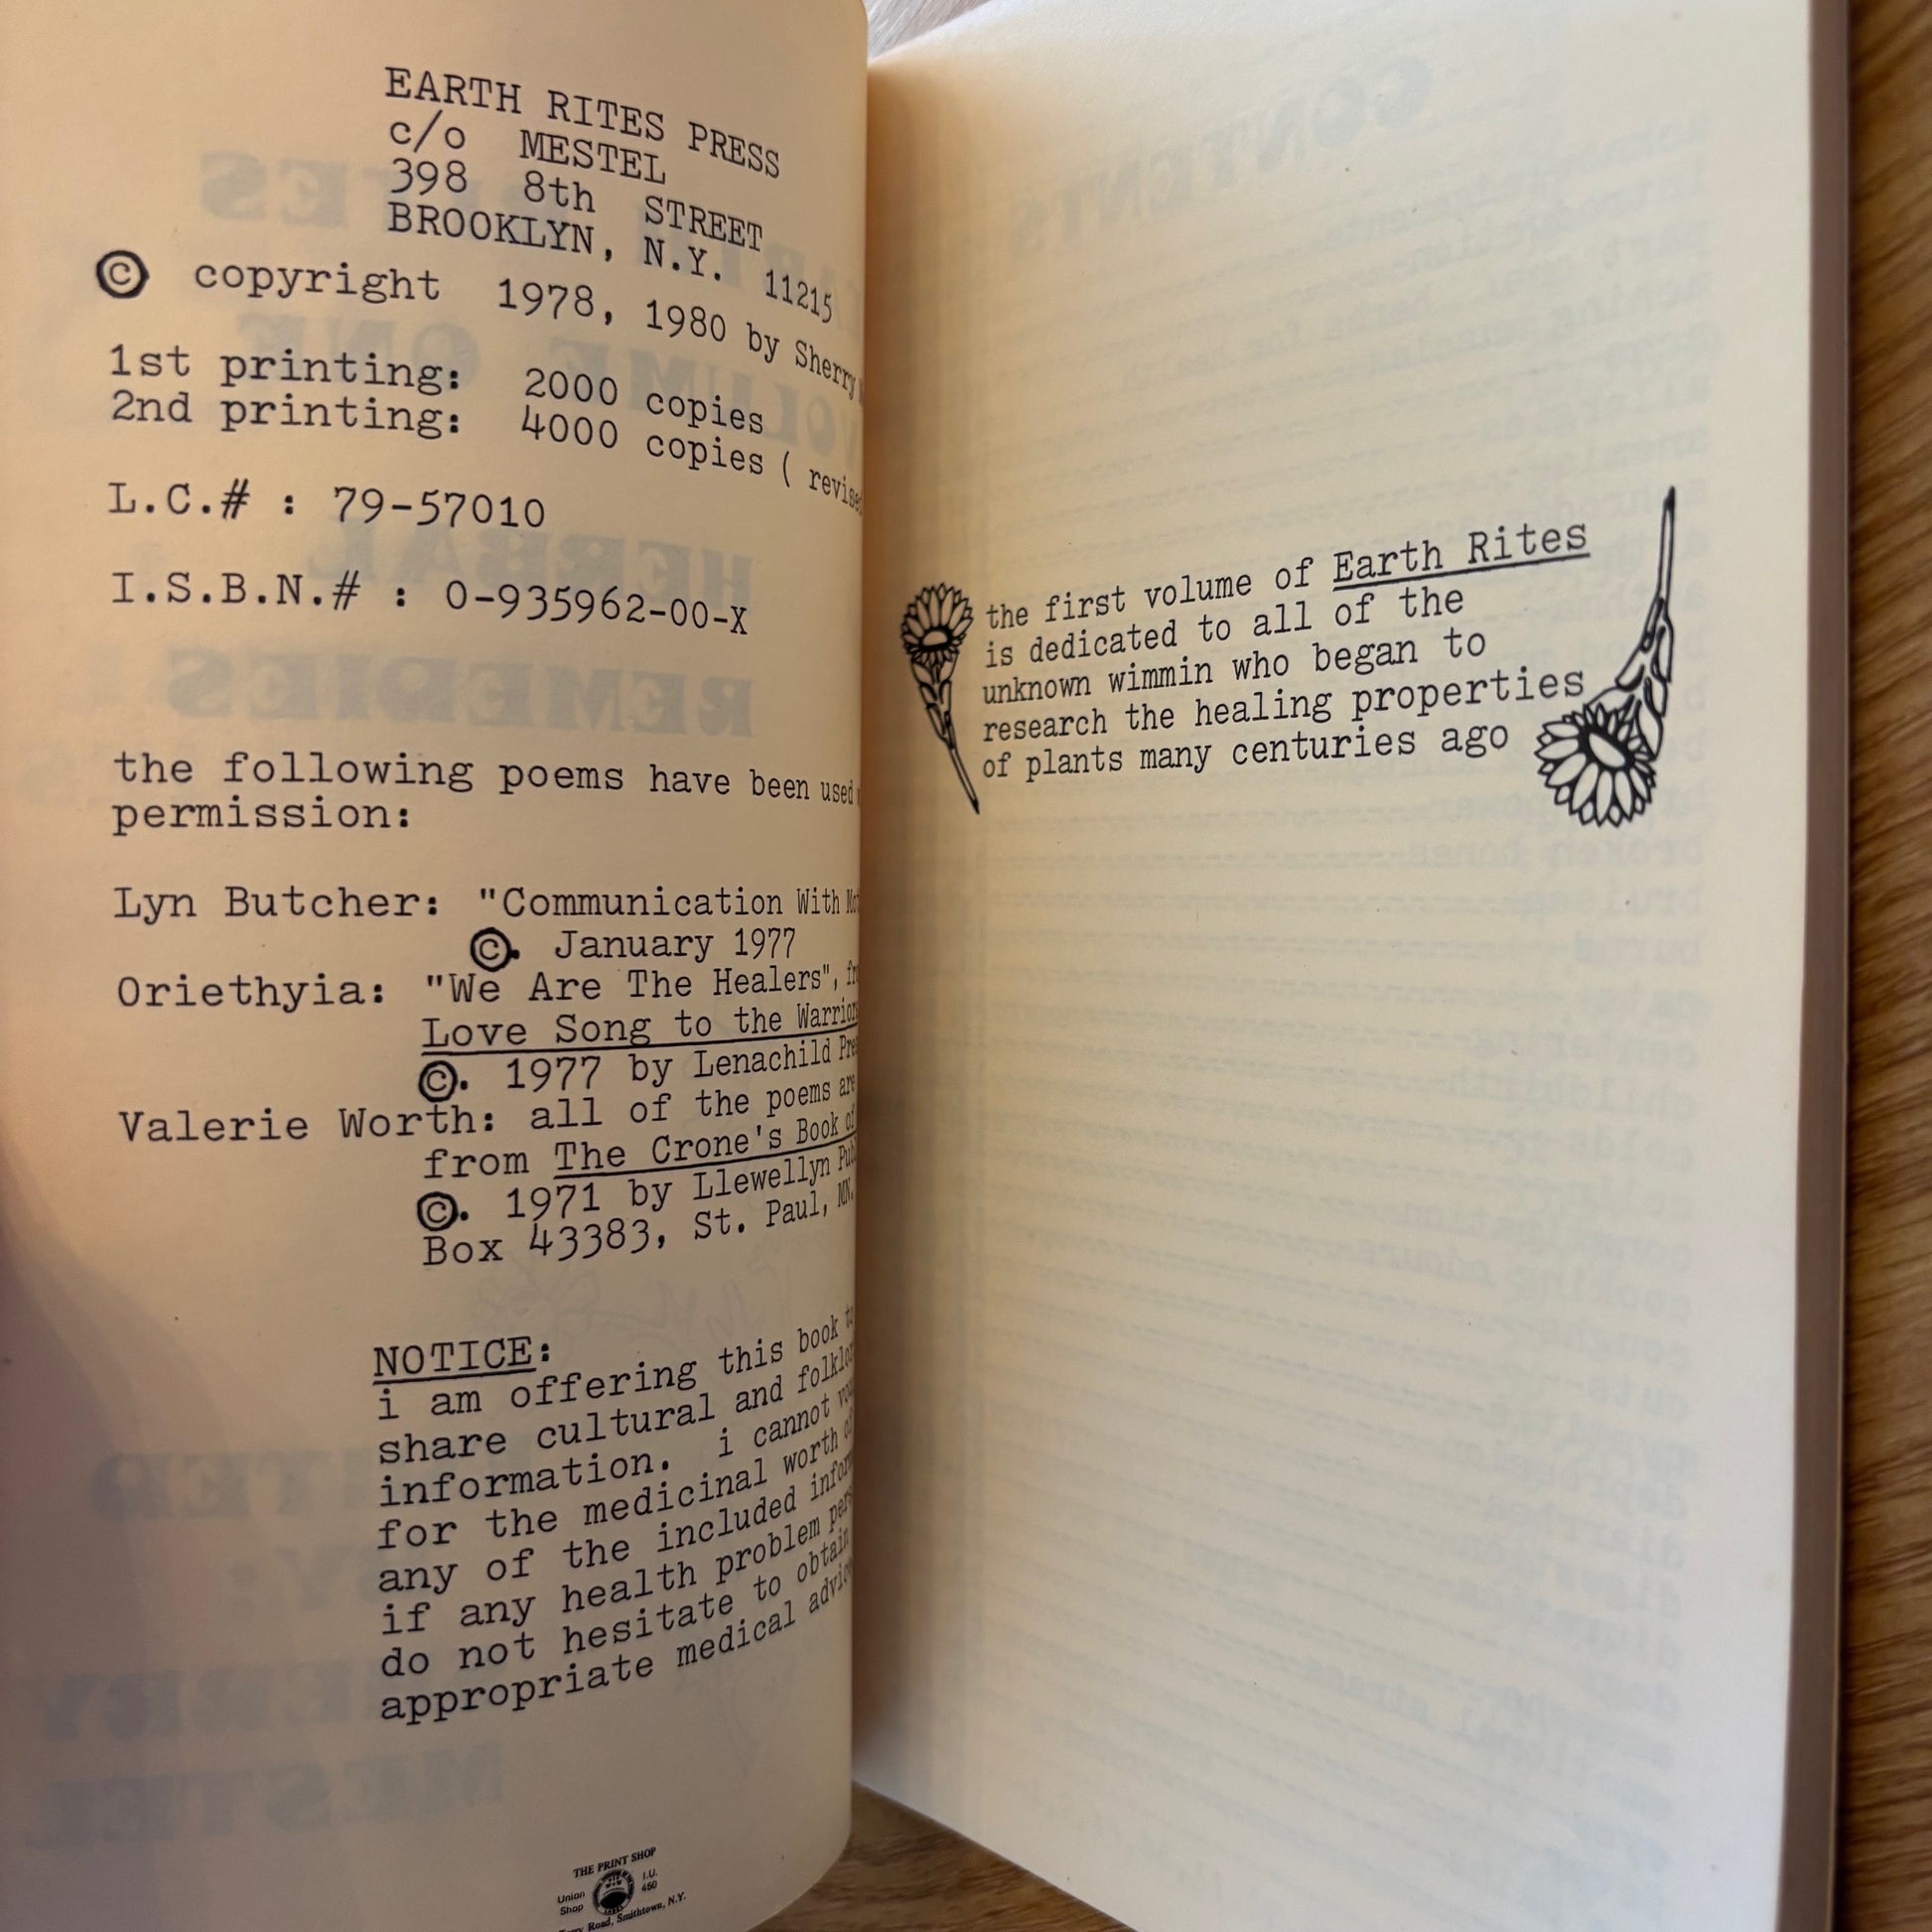 EARTH RITES PRESS
c/o MESTEL
398 8th STREET
BROOKLYN, N.Y. 11215
© copyright 1978, 1980 by Sherry
1st printing: 2000 copies
2nd printing: 4000 copies (
L.C.# : 79-57010
I.S.B.N.# : 0-935962-00-X
the following poems have been used
permission:
Lyn Butcher: "Communication With
©. January 1977
Oriethyia: "We Are The Healers",
Love Song to the
©. 1977 by Lenachild
Valerie Worth: all of the poems are
from The Crone's Book of
©. 1971 by Llewellyn
Box 43383, St. Paul, MN.
NOTICE:
i am offering this book to
share cultural and
information. i cannot
for the medicinal worth
any of the included
if any health problem
do not hesitate to obtain
appropriate medical
THE PRINT SHOP
Union I.U.
Shop 450
Road, Smithtown, N.Y.
CONTENTS
the first volume of Earth Rites
is dedicated to all of the
unknown wimmin who began to
research the healing properties
of plants many centuries ago